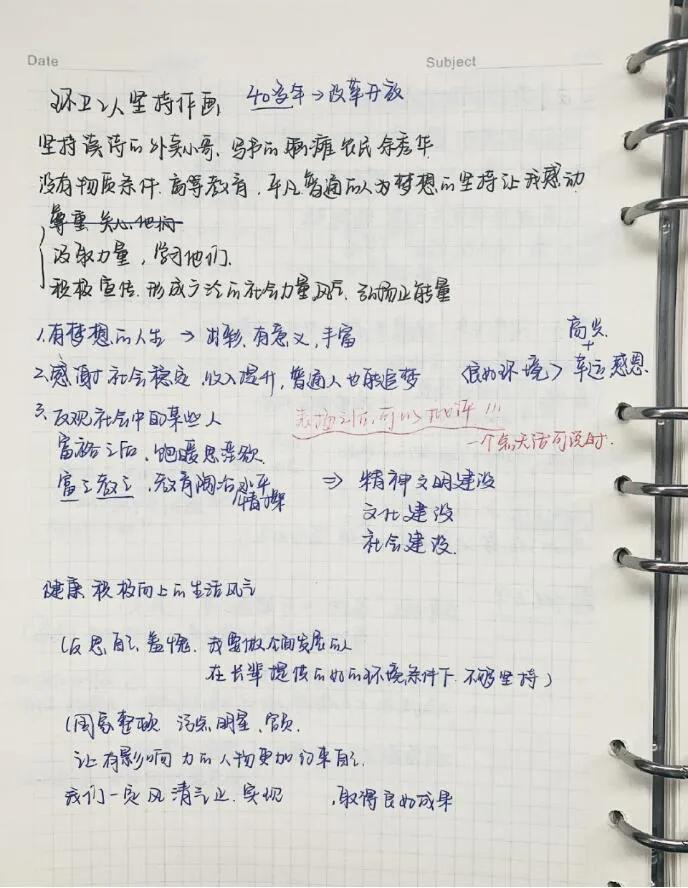 Date
Subject
环卫工人坚持作画 40多年→改革开放
坚持读诗的外卖小哥、写书的脑瘫农民余秀华
没有物质条件.高等教育,平凡普通的人为梦想的坚持让我感动
尊重 关心他们
汲取力量,学习他们.
积极宣传.形成广泛的社会力量风气.弘扬正能量
1.有梦想的人生 → 出彩,有意义,丰富
高兴
+
2.感谢社会稳定,收入提升,普通人也能追梦 〈良好环境〉幸运 感恩.
3.反观社会中的某些人
表扬之后,可以批评!!!
一个点无话可说时.
富裕之后,饱暖思淫欲.
富之教之,教育陶冶水平
情操
⇒ 精神文明建设
文化建设
社会建设.
健康 积极向上的生活风气
(反思自己 羞愧.我要做全面发展的人
在长辈提供的好的环境条件下.不够坚持)
(国家整顿 污点明星、官员.
让有影响力的人物更加约束自己.
我们一定风清气正.实现 ,取得良好成果